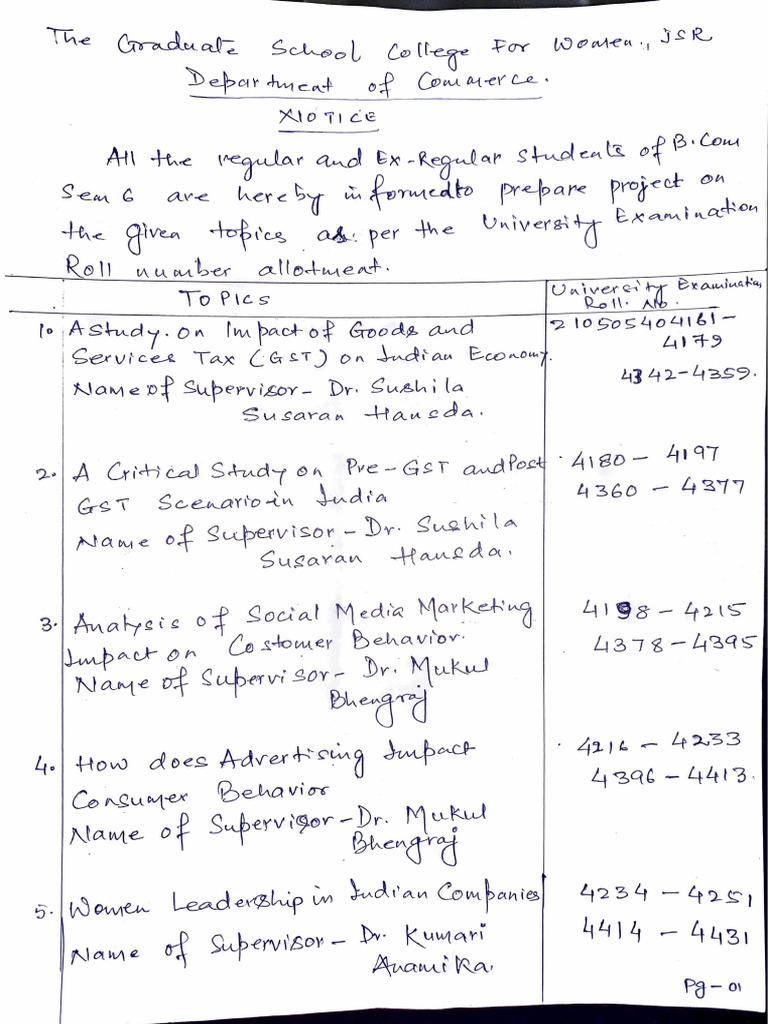 The Graduate School College For Women., JSR
Department of Commerce.
NOTICE
All the regular and Ex-Regular students of B.Com
Sem 6 are hereby informed to prepare project on
the given topics as per the University Examination
Roll number allotment.
TOPICS
University Examination
Roll. No.
1. A Study. on Impact of Goods and
Services Tax (GST) on Indian Economy.
Name of Supervisor - Dr. Sushila
Susaran Hansda.
210505404161 -
4179
4342-4359.
2. A Critical Study on Pre-GST and Post
GST Scenario in India
Name of Supervisor - Dr. Sushila
Susaran Hansda.
4180 - 4197
4360 - 4377
3. Analysis of Social Media Marketing
Impact on Costomer Behavior.
Name of Supervisor - Dr. Mukul
Bhengraj
4198 - 4215
4378 - 4395
4. How does Advertising Impact
Consumer Behavior
Name of Supervisor - Dr. Mukul
Bhengraj
4216 - 4233
4396 - 4413.
5. Women Leadership in Indian Companies
Name of Supervisor - Dr. Kumari
Anamika.
4234 - 4251
4414 - 4431
Pg-01